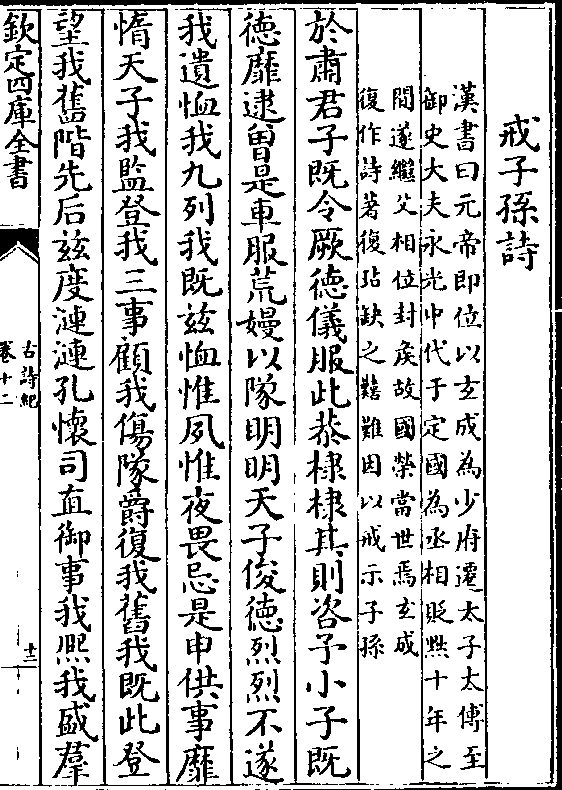 戒子孫詩
漢書曰元帝即位以玄成為少府遷太子太傅至
御史大夫永光中代于定國為丞相貶黜十年之
間遂繼父相位封矦故國榮當世焉玄成
復作詩著復玷缺之囏難因以戒示子孫
於肅君子既令厥德儀服此恭棣棣其則咨予小子既
德靡逮曽是車服荒嫚以隊明明天子俊德烈烈不遂
我遺恤我九列我既兹恤惟夙惟夜畏忌是申供事靡
惰天子我監登我三事顧我傷隊爵復我舊我既此登
望我舊階先后兹度漣漣孔懷司直御事我熈我盛羣
欽定四庫全書
古詩紀
卷十二
十二